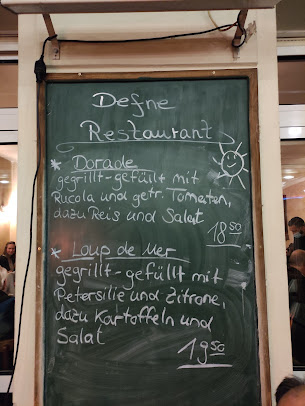 Defne
Restaurant
* Dorade
gegrillt-gefüllt mit
Rucola und getr. Tomaten,
dazu Reis und Salat
18 50
* Loup de Mer
gegrillt-gefüllt mit
Petersilie und Zitrone,
dazu Kartoffeln und
Salat
19 50